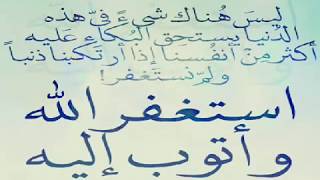 ليسَ هُناك شيءً فيَّ هذه
الدُنيا يستحق البُكاءِ عَليه
أكثر مِنْ أنفُسنَا إذا أرتَكبنا ذنباً
ولمَ نستغفر!
استغفر الله
وأتوب إليه